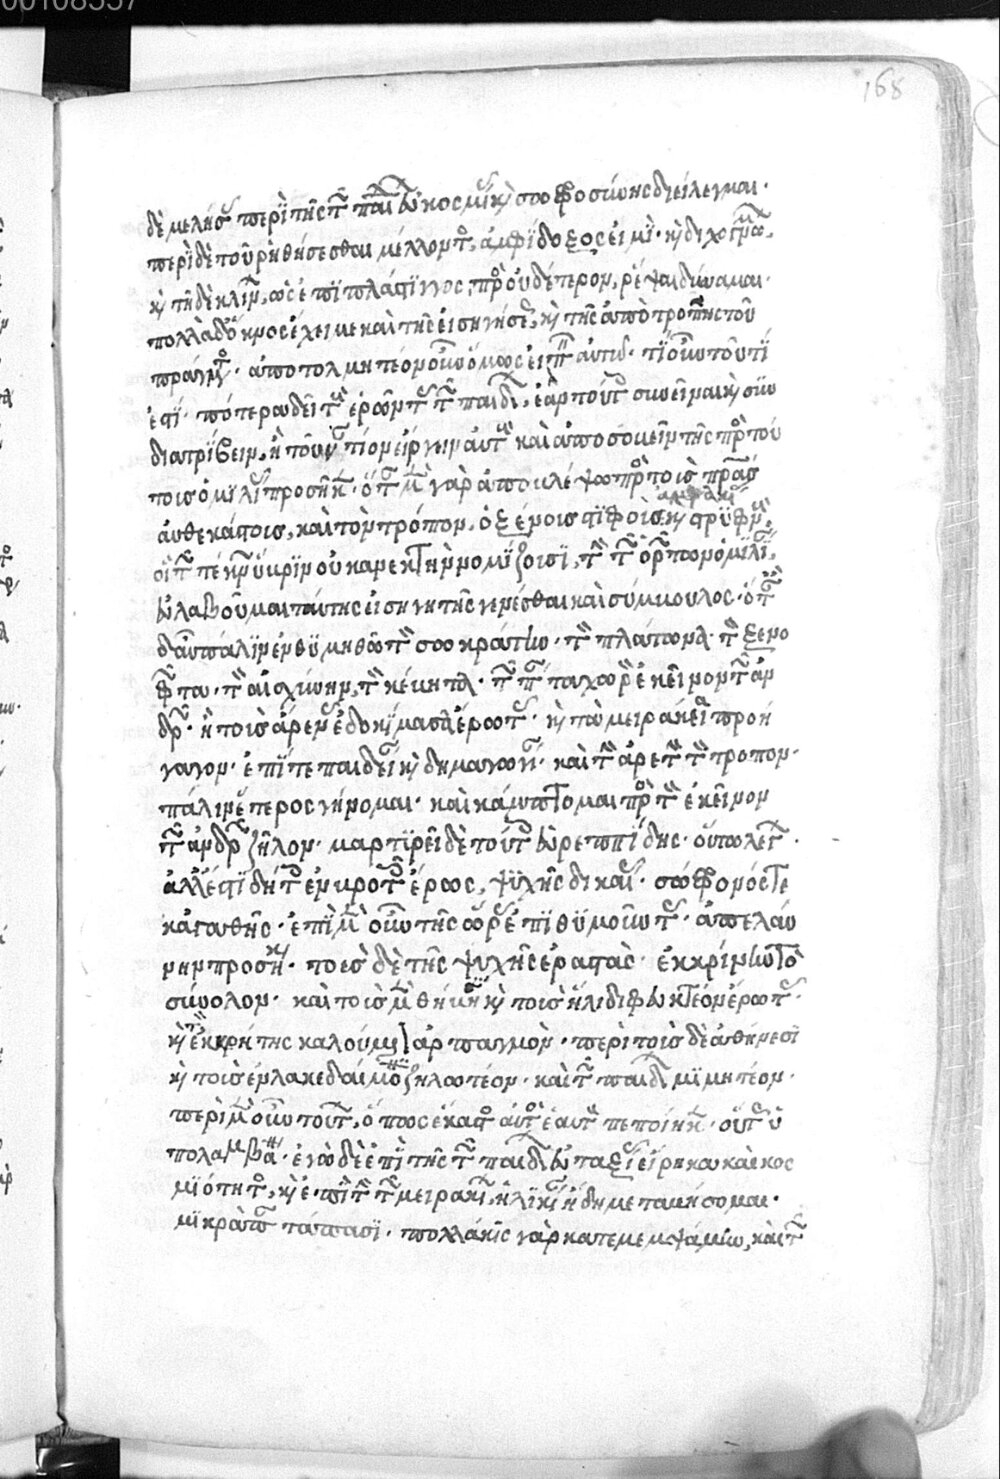 δὲ μελήσ περὶ τῆς τῶν παίδων εὐκοσμίας κὶ σωφροσύνης διείλεγμαι·
περὶ δὲ τοῦ ῥηθήσεσθαι μέλλοντος, ἀμφίδοξος εἰμὶ· κὶ διχογνώμων,
κὶ τῆδε κλίνων, ὡς ἐπὶ πλάστιγγος, πρὸς οὐδέτερον, ῥέψαι δύναμαι·
πολλὰ δ' ὄκνος ἔχει με καὶ τῆς εἰσηγήσεως, κὶ τῆς ἀποτροπῆς τοῦ
πράγματος· ἀποτολμητέον οὖν ὅμως εἰπεῖν αὐτό· τί οὖν τοῦτί
ἐστί· πότερον δεῖ τοὺς ἐρῶντας τῶν παίδων, ἐᾶν τούτοις συνεῖναι κὶ συν
διατρίβειν, ἢ τοὐναντίον εἴργειν αὐτοὺς καὶ ἀποσοβεῖν τῆς πρὸς τού
τοις ὁμιλίας προσῆκεν· ὅταν μὲν γὰρ ἀποβλέψω πρὸς τοὺς πατέρας
αὐθεκάστοις, καὶ τὸν τρόπον, ὀξέροις στίφοις κὶ στρυφνοὺς,
οἳ τῶν τέκνων ὕβριν οὐκ ἀνεκτὴν νομίζοισι, τὴν τῶν ἐρώντων ὁμιλίαν,
εὐλαβοῦμαι ταύτης εἰσηγητὴς γενέσθαι καὶ σύμβουλος· ὅταν
δ' αὖ πάλιν ἐνθυμηθῶ τὸν σωκράτην· τὸν πλάτωνα· τὸν ξενο
φῶντα· τὸν αἰσχίνην, τὸν κέβητα· τὸν πάντα χορὸν ἐκεῖνον τῶν ἀν
δρῶν· ἢ τοὺς ἄρενας ἐδοκίμασαν ἔρωτας· κὶ τὰ μειράκια προή
γαγον· ἐπί τε παιδείαν κὶ δημαγωγίαν· καὶ τὴν ἀρετὴν τῶν τρόπον·
πάλιν ἕτερος γίνομαι· καὶ κάμπτομαι πρὸς τὸν ἐκεῖνον
τῶν ἀνδρῶν ζῆλον· μαρτυρεῖ δὲ τούτοις εὐρεππίδης· οὕτω λέγων·
ἀλλ' ἔστι δή τις ἐν βροτοῖς ἔρως, ψυχῆς δικαίας· σώφρονός τε
κἀγαθῆς· ἐπὶ μὲν οὖν τῆς ὥρας ἐπιθυμοῦντας· ἀπελαύ
νην προσήκει· τοὺς δὲ τῆς ψυχῆς ἐραστὰς· ἐκκρίνω τὸ
σύνολον· καὶ τοὺς μὲν θήβησι κὶ τοὺς ἤλιδι φευκτέον ἔρωτας·
κὶ ἐν κρήτης καλούμενον ἁρπαγμόν· περὶ τοὺς δὲ ἀθήνεσι
κὶ τοὺς ἐν λακεδαίμονι ζηλωτέον· καὶ τῶν παίδων μιμητέον·
περὶ μὲν οὖν τούτων, ὅπως ἕκαστος αὐτὸς ἑαυτὸν πεποίηκεν· οὕτως ὑ
πολαμβάνει· ἐγὼ δὲ ἐπὶ τῆς τῶν παίδων εὐταξίας εἴρηκα καὶ κος
μιότητος, κὶ ἐπὶ τὴν τῶν μειρακίων ἡλικίαν ἤδη μεταβήσομαι·
μικρὰ παντάπασι· πολλάκις γὰρ κατεμεμψάμην, καὶ τῶν